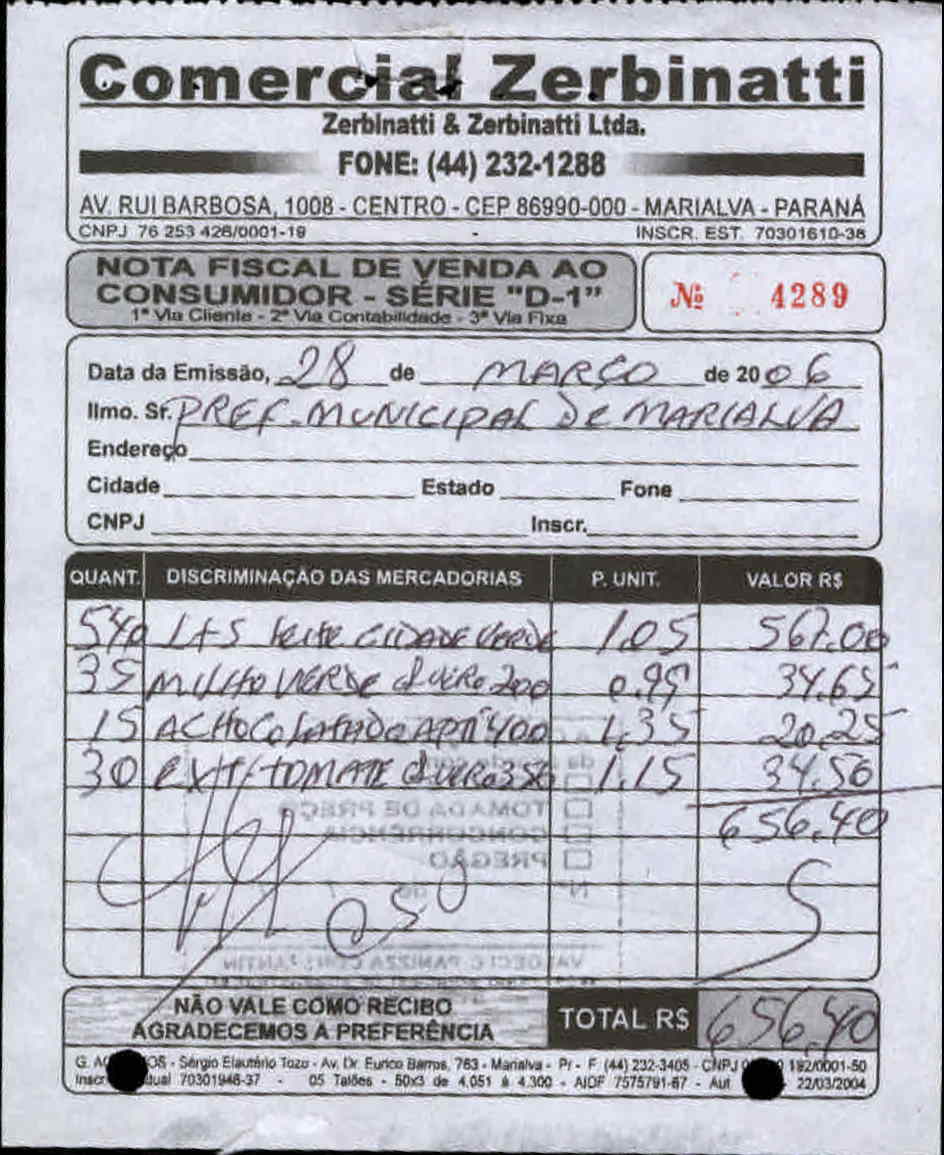 Comercial Zerbinatti
Zerbinatti & Zerbinatti Ltda.
FONE: (44) 232-1288
AV. RUI BARBOSA, 1008 - CENTRO - CEP 86990-000 - MARIALVA - PARANÁ
CNPJ 76 253 426/0001-19 INSCR. EST. 70301610-36
NOTA FISCAL DE VENDA AO
CONSUMIDOR - SÉRIE "D-1"
1ª Via Cliente - 2ª Via Contabilidade - 3ª Via Fixa
Nº 4289
Data da Emissão, 28 de MARÇO de 2006
Ilmo. Sr. PREF. MUNICIPAL DE MARIALVA
Endereço
Cidade Estado Fone
CNPJ Inscr.
QUANT. DISCRIMINAÇÃO DAS MERCADORIAS P. UNIT. VALOR R$
540 LTS LEITE CIDADE VERDE 1.05 567.00
35 MILHO VERDE QUERO 200 0.99 34.65
15 ACHOCOLATADO APTI 400 1.35 20.25
30 EXT/TOMATE QUERO 350 1.15 34.50
656.40
TOMADA DE PREÇO
CONCORRÊNCIA
PREGÃO
Nº de
NÃO VALE COMO RECIBO
AGRADECEMOS A PREFERÊNCIA
TOTAL R$ 656,40
- Sérgio Elautério Tozo - Av. Dr. Eurico Barros, 763 - Marialva - Pr - F (44) 232-3405 - CNPJ 192/0001-50
70301946-37 - 05 Talões - 50x3 de 4.051 à 4.300 - AIDF 7575791-67 - Aut 22/03/2004